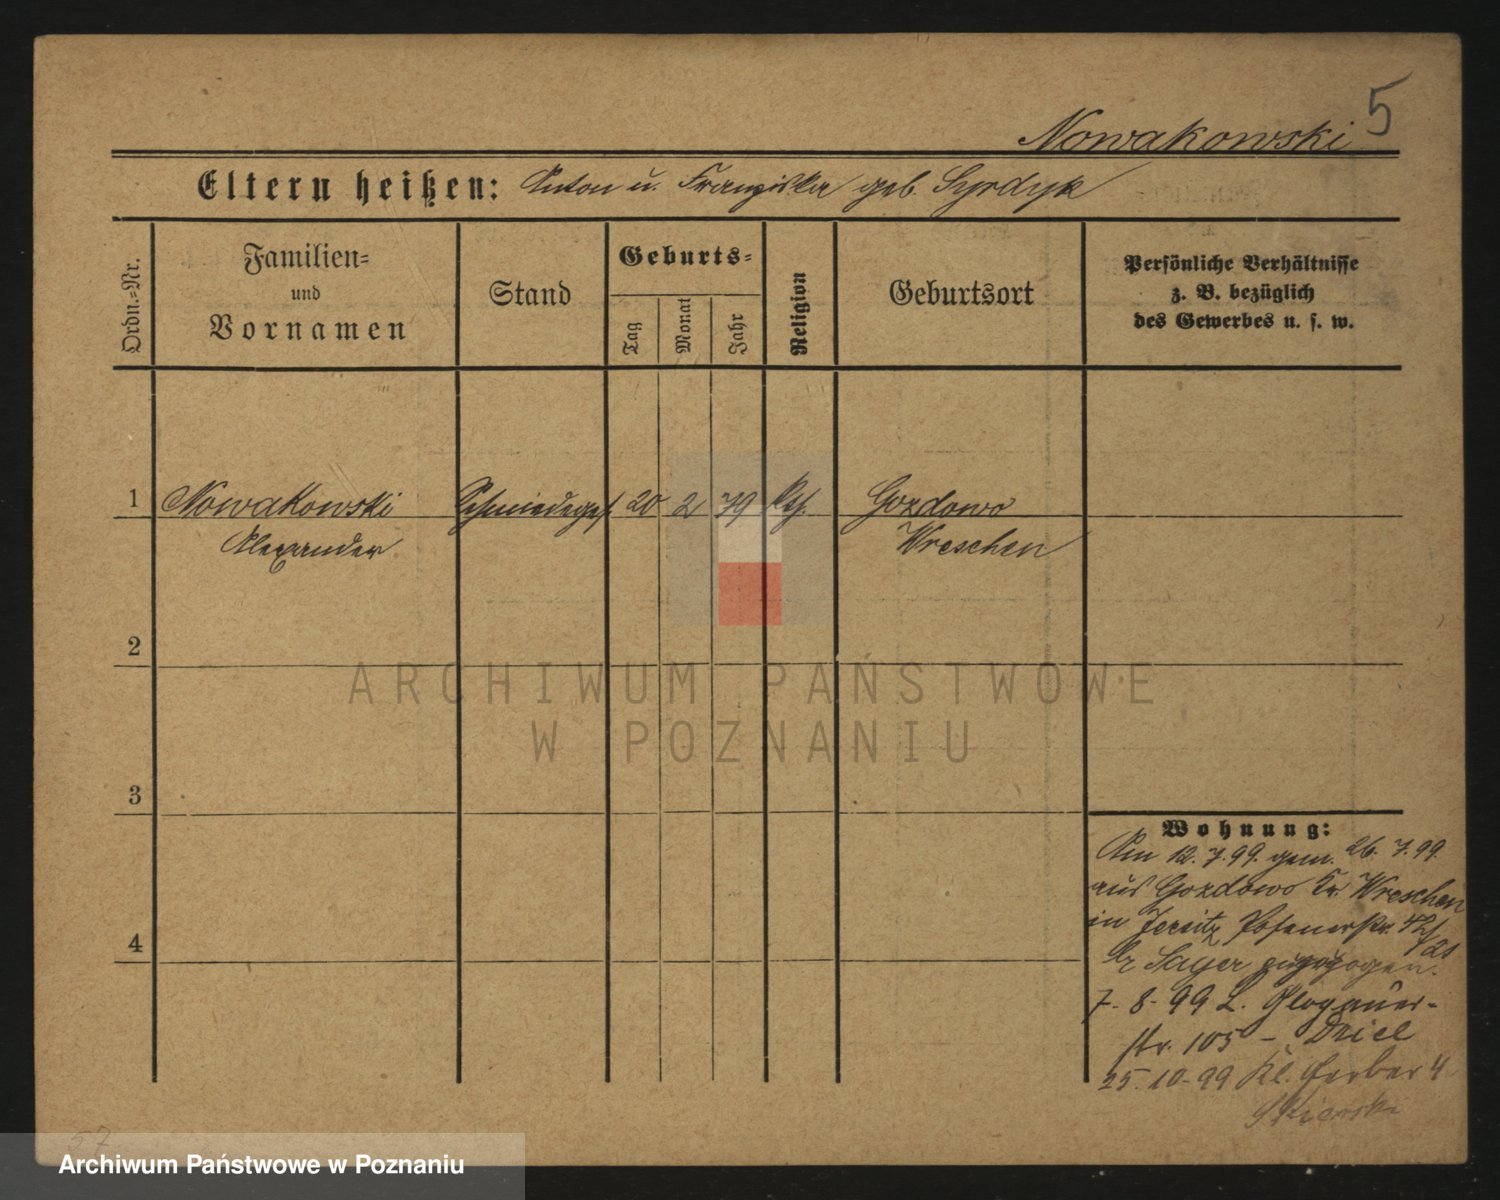 5
Nowakowski
Eltern heißen: Anton u. Franziska geb. Syrdyk
Ordn.=Nr.
Familien=
und
Vornamen
Stand
Geburts=
Tag
Monat
Jahr
Religion
Geburtsort
Persönliche Verhältnisse
z. B. bezüglich
des Gewerbes u. s. w.
1 Nowakowski Schmiedeges 20 2 79 kth. Gozdowo
Alexander Wreschen
2
3
4
Wohnung:
Am 12.7.99. gem. 26.7.99.
aus Gozdowo Kr. Wreschen
in Jersitz Posenerstr. 42/21
Sager zugezogen.
7.8.99 L. Glogauer-
str. 105 –
25.10.99 Kl. Gerber 4
57
ARCHIWUM PAŃSTWOWE
W POZNANIU
Archiwum Państwowe w Poznaniu